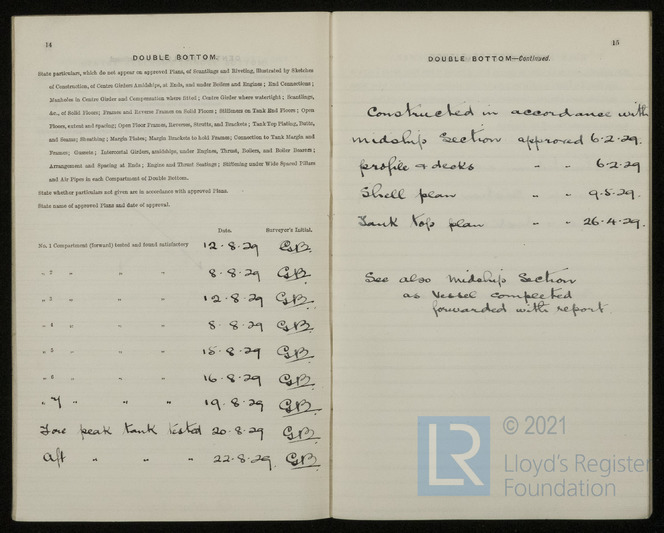 14
DOUBLE BOTTOM.
State particulars, which do not appear on approved Plans, of Scantlings and Riveting, illustrated by Sketches
of Construction, of Centre Girders Amidships, at Ends, and under Boilers and Engines; End Connections;
Manholes in Centre Girder and Compensation where fitted; Centre Girder where watertight; Scantlings,
&c., of Solid Floors; Frames and Reverse Frames on Solid Floors; Stiffeners on Tank End Floors; Open
Floors, extent and spacing; Open Floor Frames, Reverses, Struts, and Brackets; Tank Top Plating, Butts,
and Seams; Sheathing; Margin Plates; Margin Brackets to hold Frames; Connection to Tank Margin and
Frames; Gussets; Intercostal Girders, amidships, under Engines, Thrust, Boilers, and Boiler Bearers;
Arrangement and Spacing at Ends; Engine and Thrust Seatings; Stiffening under Wide Spaced Pillars
and Air Pipes in each Compartment of Double Bottom.
State whether particulars not given are in accordance with approved Plans.
State name of approved Plans and date of approval.
Date. Surveyor's Initial.
No. 1 Compartment (forward) tested and found satisfactory 12·8·29 GB.
„ 2 „ „ „ 8·8·29 GB.
„ 3 „ „ „ 12·8·29 GB.
„ 4 „ „ „ 8·8·29 GB.
„ 5 „ „ „ 15·8·29 GB.
„ 6 „ „ „ 16·8·29 GB.
„ 7 „ „ „ 19·8·29 GB.
Fore peak tank tested 20·8·29 GB.
Aft „ „ „ 22·8·29. GB.
15
DOUBLE BOTTOM—Continued.
Constructed in accordance with
midship Section approved 6·2·29.
profile & decks „ „ 6·2·29
Shell plan „ „ 9·5·29.
Tank top plan „ „ 26·4·29.
See also Midship Section
as Vessel completed
forwarded with report.
LR
© 2021
Lloyd's Register
Foundation